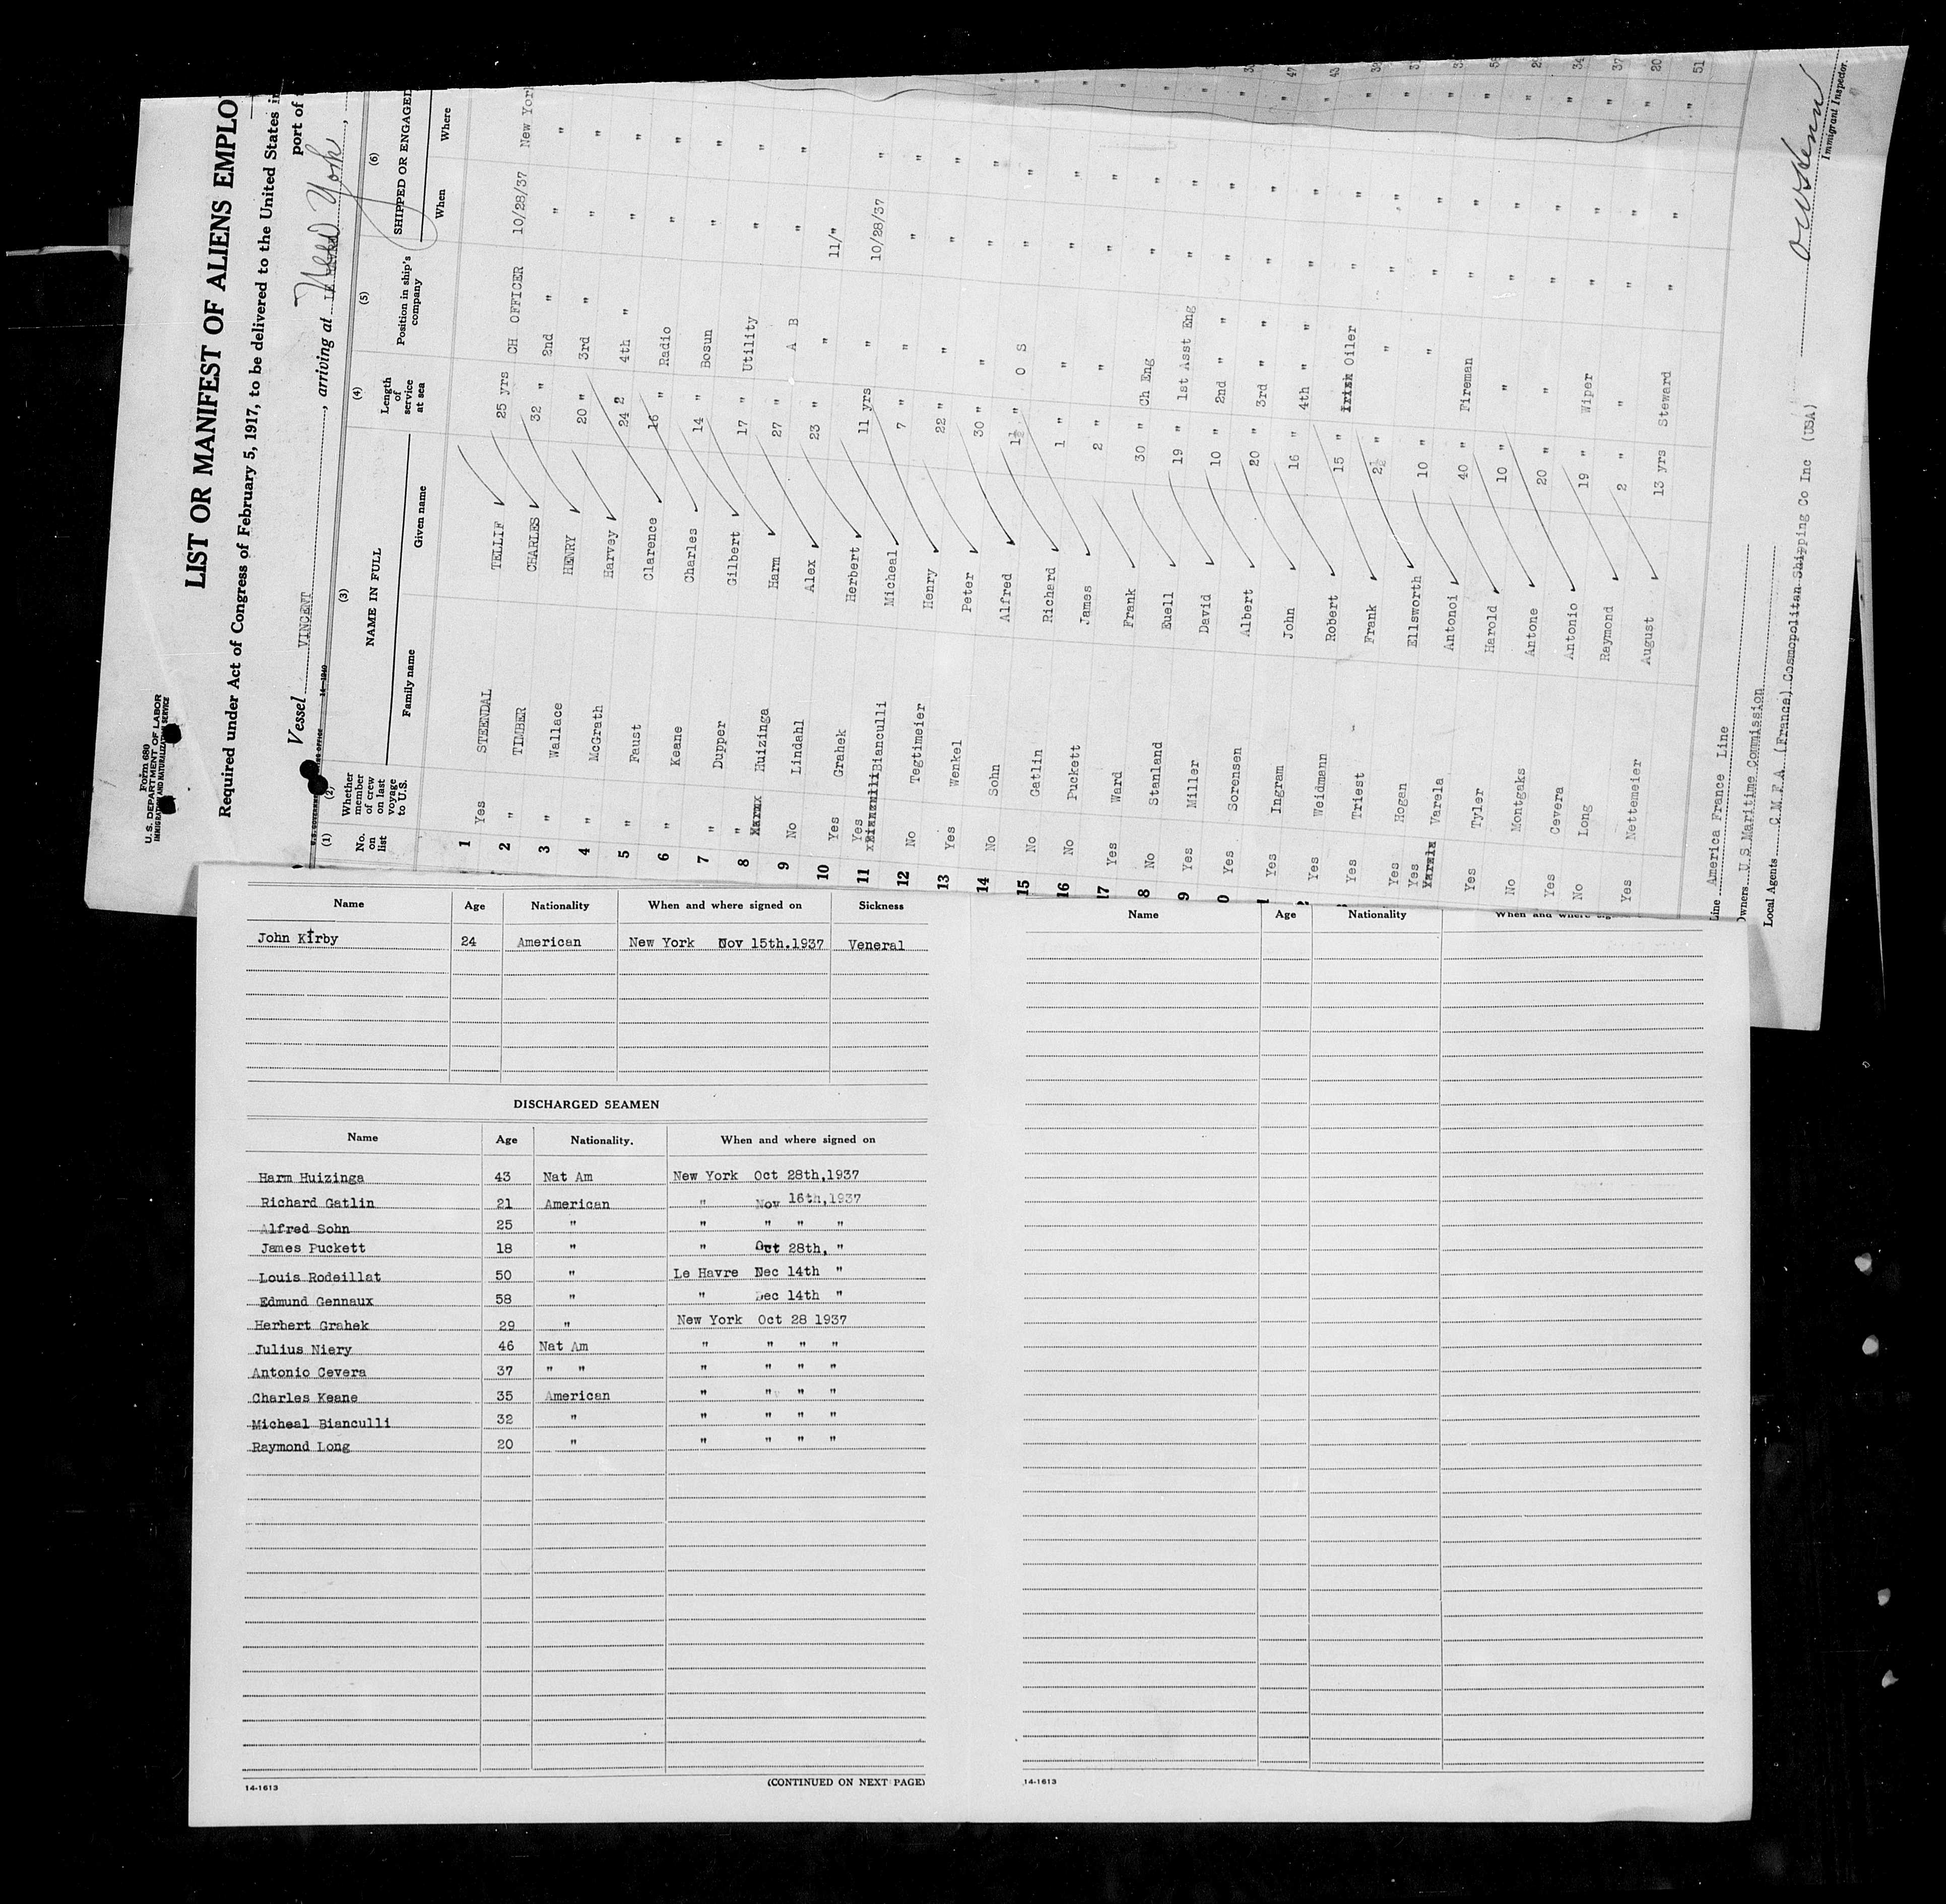 Form 680
U.S. DEPARTMENT OF LABOR
IMMIGRATION AND NATURALIZATION SERVICE
LIST OR MANIFEST OF ALIENS EMPLO
Required under Act of Congress of February 5, 1917, to be delivered to the United States i
Vessel VINCENT, arriving at New York, port of
14—1240
(1) (2) (3) (4) (5) (6)
No. on list Whether member of crew on last voyage to U.S. NAME IN FULL Length of service at sea Position in ship's company SHIPPED OR ENGAGED
Family name Given name When Where
1 Yes STEENDAL TELLIF 25 yrs CH OFFICER 10/28/37 New York
2 " TIMBER CHARLES 32 " 2nd " " "
3 " Wallace HENRY 20 " 3rd " " "
4 " McGrath Harvey 24 2 4th " " "
5 " Faust Clarence 16 " Radio " "
6 " Keane Charles 14 " Bosun " "
7 " Dupper Gilbert 17 " Utility " "
8 " Huizinga Harm 27 " A B " "
9 No Lindahl Alex 23 " " 11/"
10 Yes Grahek Herbert 11 yrs " 10/28/37 "
11 Yes Bianculli Micheal 7 " " " "
12 No Tegtimeier Henry 22 " " " "
13 Yes Wenkel Peter 30 " " " "
14 No Sohn Alfred 1½ " O S " "
15 No Gatlin Richard 1 " " " "
16 No Puckett James 2 " " " "
17 Yes Ward Frank 30 " Ch Eng " "
8 No Stanland Euell 19 " 1st Asst Eng " "
9 Yes Miller David 10 " 2nd " " " "
0 Yes Sorensen Albert 20 " 3rd " " " "
Yes Ingram John 16 " 4th " " " "
Yes Weidmann Robert 15 " Oiler " "
Yes Triest Frank 2½ " " " "
Yes Hogan Ellsworth 10 " " " "
Yes Varela Antonoi 40 " Fireman " "
Yes Tyler Harold 10 " " " "
No Montgaks Antone 20 " " " "
Yes Cevera Antonio 19 " Wiper " "
No Long Raymond 2 " " " "
Yes Nettemeier August 13 yrs Steward " "
Line America France Line
Owners U S Maritime Commission
Local Agents C.M.F.A. (France) Cosmopolitan Shipping Co Inc (USA)
Immigrant Inspector.
Name Age Nationality When and where signed on Sickness
John Kirby 24 American New York Nov 15th.1937 Veneral
DISCHARGED SEAMEN
Name Age Nationality. When and where signed on
Harm Huizinga 43 Nat Am New York Oct 28th,1937
Richard Gatlin 21 American " Nov 16th,1937
Alfred Sohn 25 " " " " "
James Puckett 18 " " Oct 28th, "
Louis Rodeillat 50 " Le Havre Dec 14th "
Edmund Gennaux 58 " " Dec 14th "
Herbert Grahek 29 " New York Oct 28 1937
Julius Niery 46 Nat Am " " " "
Antonio Cevera 37 " " " " " "
Charles Keane 35 American " " " "
Micheal Bianculli 32 " " " " "
Raymond Long 20 " " " " "
14-1613
(CONTINUED ON NEXT PAGE)
Name Age Nationality When and where sig
14-1613